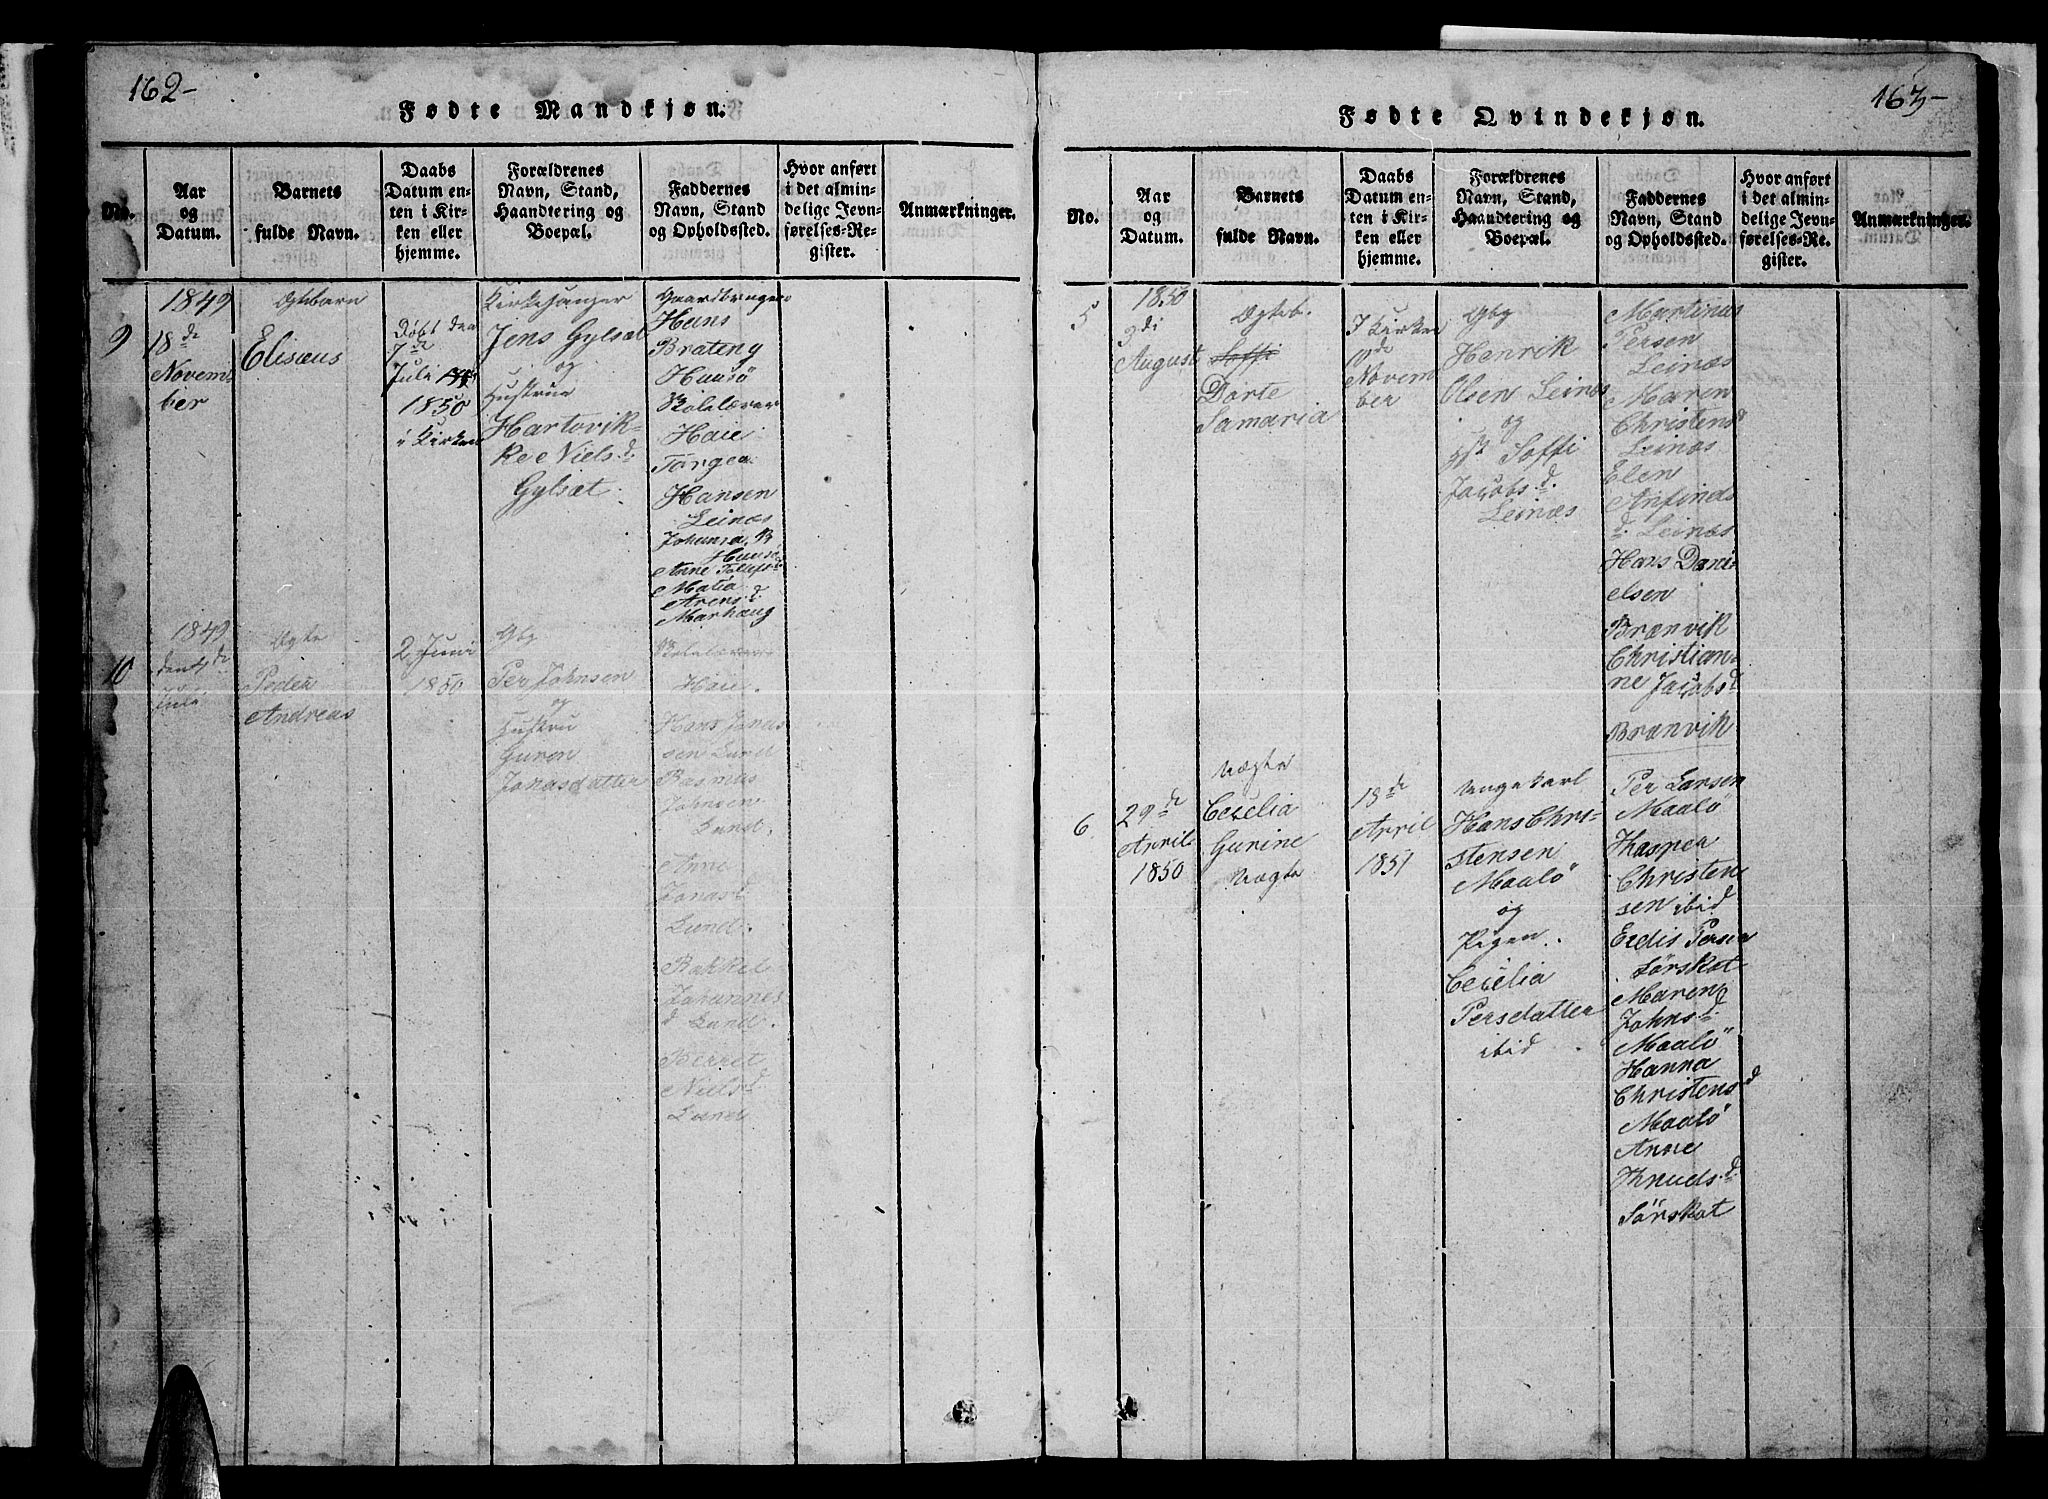 162-
Fødte Mandkjøn.
No.
Aar
og
Datum.
Barnets
fulde Navn.
Daabs
Datum en-
ten i Kir-
ken eller
hjemme.
Forældrenes
Navn, Stand,
Haandtering og
Boepæl.
Faddernes
Navn, Stand
og Opholdssted.
Hvor anført
i det almin-
delige Jevn-
førelses-Re-
gister.
Anmærkninger.
9
1849
18de
Novem-
ber
Ægtebarn
Elisæus
Døbt den
7de
Juli
1850
i Kirken
Kirkesanger
Jens Gylsæt
og
Hustrue
Hartovik-
Ke Niels d:
Gylsæt.
Gaardbruger
Hans
Brateng
Hausø
Skolelærer
Haie
Jørgen
Hansen
Leinæs
Johanna
Anne
Maria
Arens d:
Marhaug
10
1849
Juli
Ægte
Peder
Andreas
2 Juni
1850
Gby
Per Johnsen
og
Hustru
Guren
Jonasdatter
Skolelærer
Haie.
Hans Jonas
sen Lund
Rasmus
Johnsen
Lund.
Anne
Jonas d
Lund.
Rakkel
Johannes
d Lund.
Berret
Niels d
Lund
163-
Fødte Qvindekjøn.
No.
Aar
og
Datum.
Barnets
fulde Navn.
Daabs
Datum en-
ten i Kir-
ken eller
hjemme.
Forældrenes
Navn, Stand,
Haandtering og
Boepæl.
Faddernes
Navn, Stand
og Opholdssted.
Hvor anført
i det almin-
delige Jevn-
førelses-Re-
gister.
Anmærkninger.
5
1850
9di
August
Ægteb.
Soffi
Dorte
Samaria
I Kirken
10de
Novem
ber
Gby
Henrik
Olsen Leinæs
og
Hst Soffi
Jacobs d.
Leinæs
Martinus
Persen
Leinæs
Maren
Christens d
Leinæs
Elen
Anfinds
d. Leinæs
Hans Dani-
elsen
Brænvik
Christian-
ne Jacobs d
Brænvik
6.
29de
April
1850
Uægte
Cecelia
Gurine
Uægte
18de
April
1851
Ungekarl
Hans Chri-
stensen
Maalø
og
Pigen.
Cecelia
Persdatter
ibid
Per Larsen
Maalø
Kasper
Christen
sen ibid
Erdis Persen
Sørskot
Maren
Johns d.
Maalø
Hanna
Christens d
Maalø
Anne
Knuds d.
Sørskot